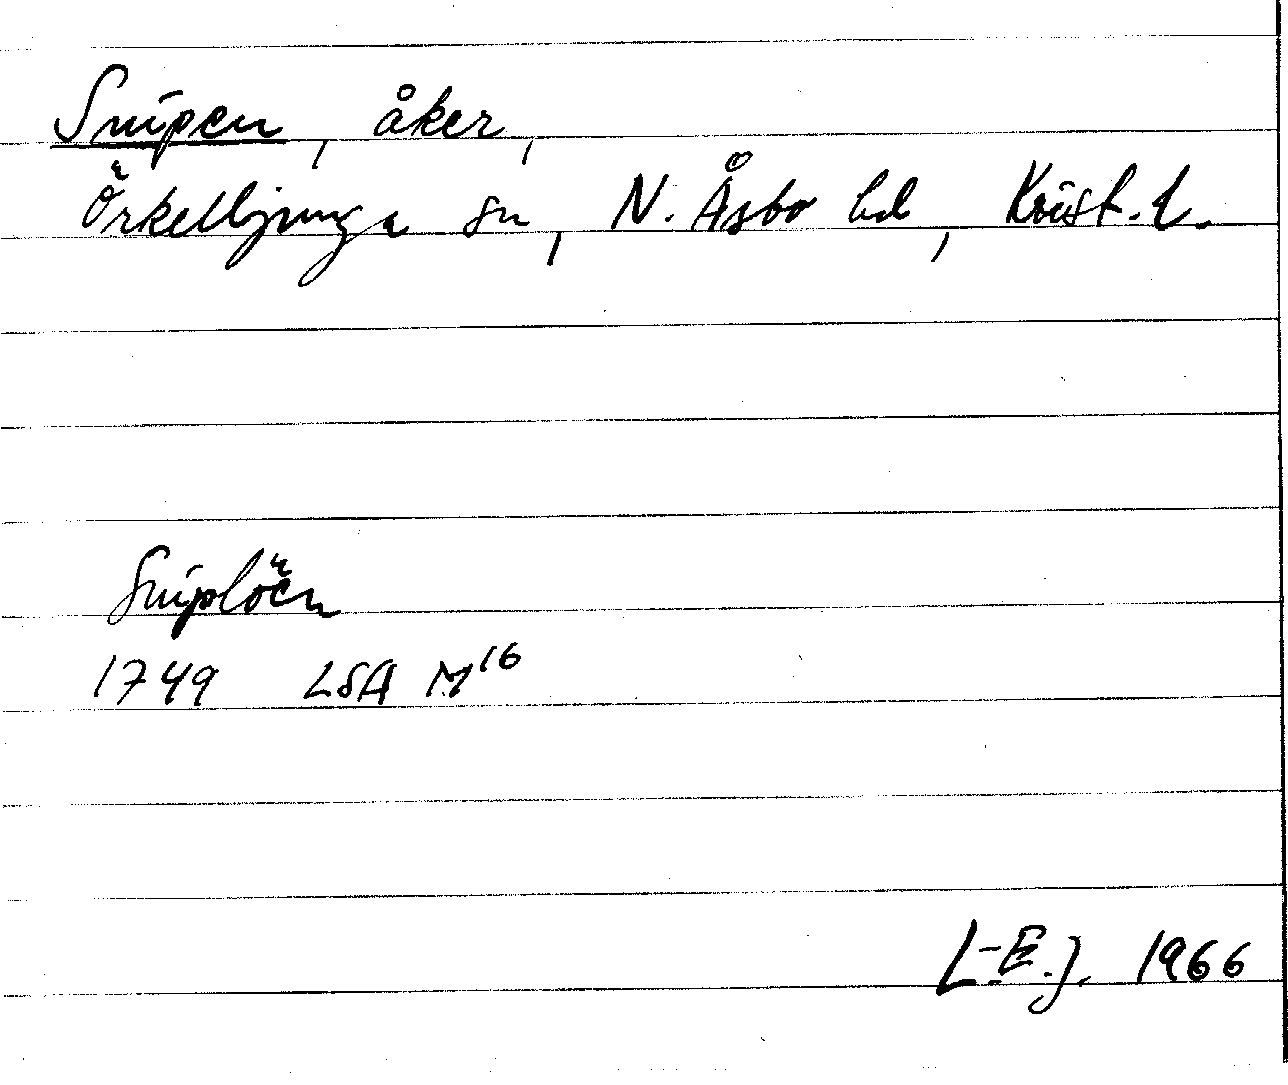 Snipen, åker,
Örkelljunga sn, N. Åsbo hd, Krist. l.
Sniplöcn
1749 LSA M16
L-E.J. 1966